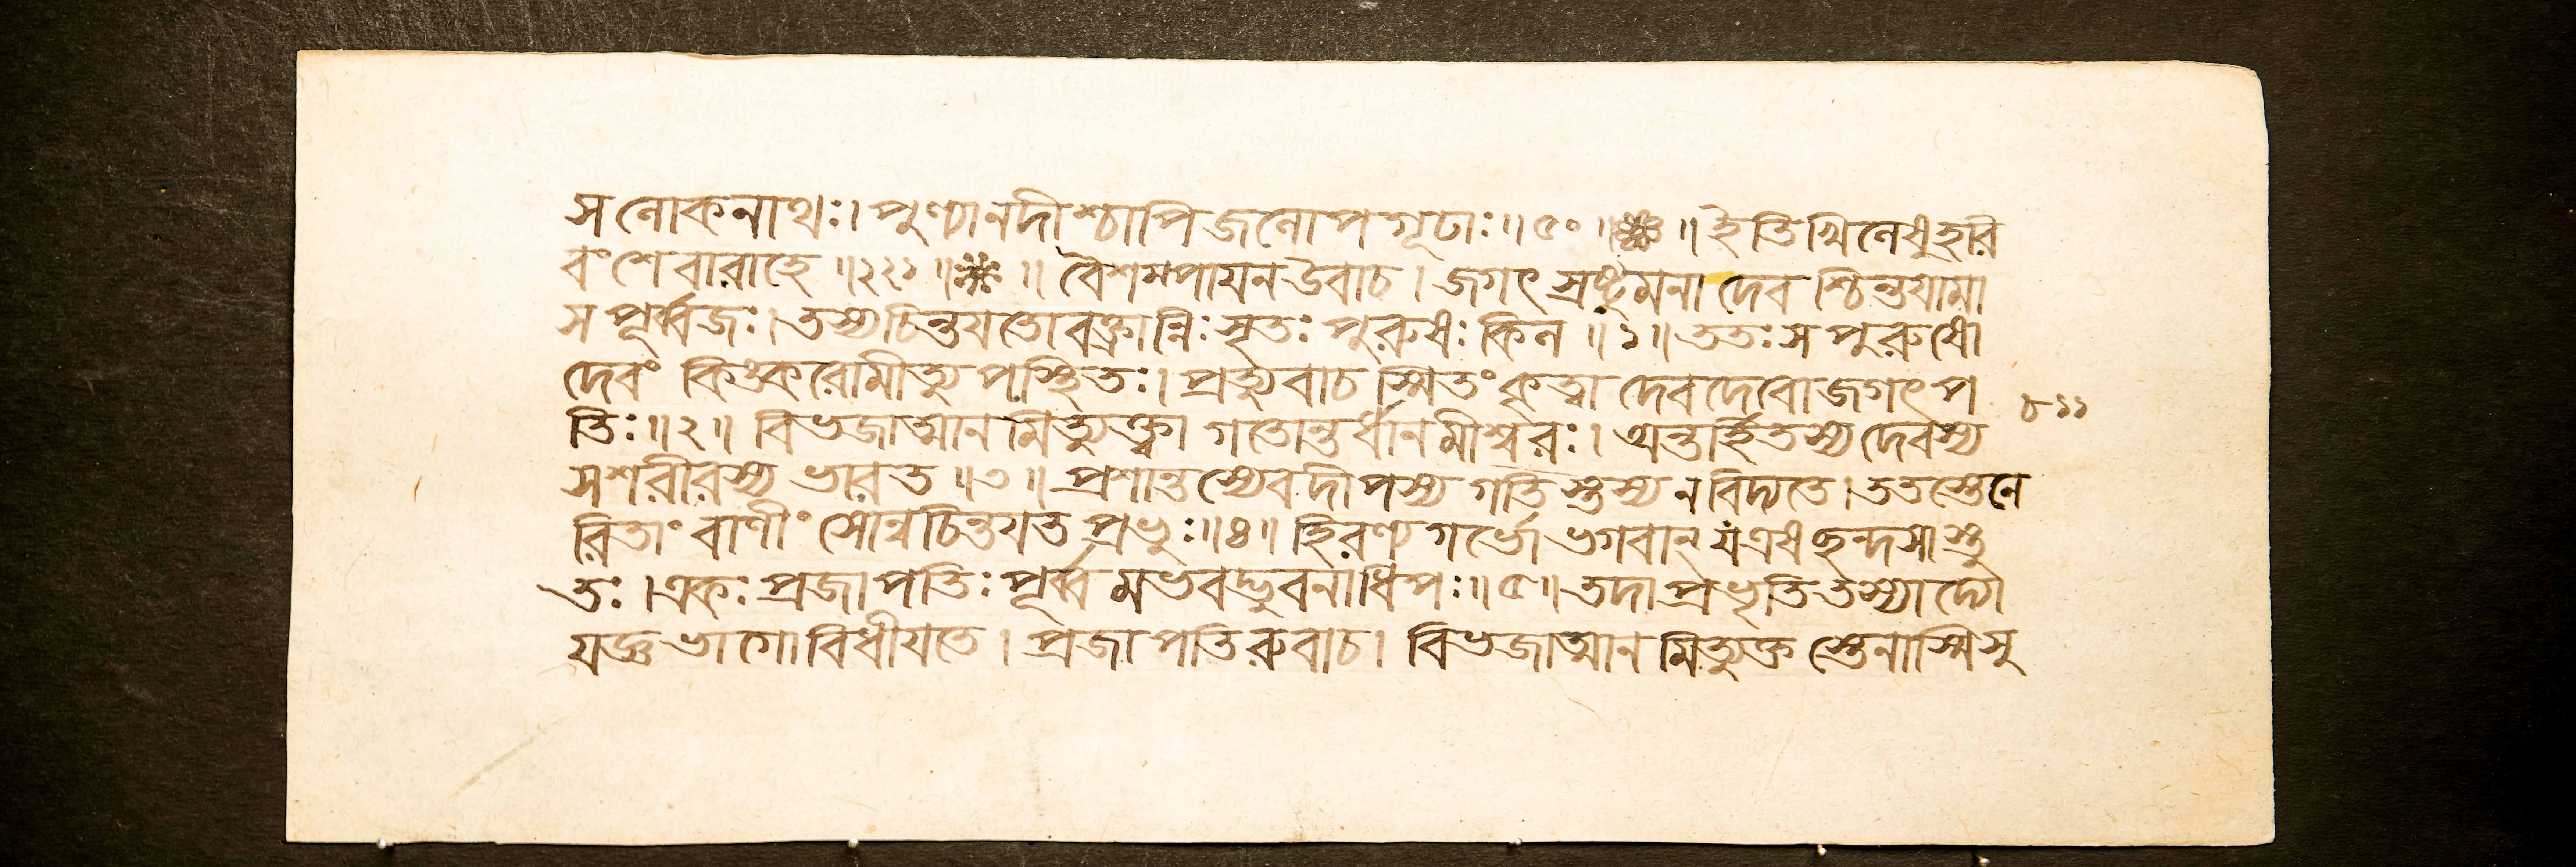 স লোকনাথঃ। পুণ্যানদীশ্চাপি জলোপগূঢাঃ॥৫০॥❋॥ ইতি খিলেষু হরি
বংশে বারাহে॥২২১॥❋॥ বৈশম্পায়ন উবাচ। জগৎ স্রষ্টুমনা দেবশ্চিন্তয়ামা
স পূর্ব্বজঃ। তস্য চিন্তয়তো বক্ত্রান্নিঃসৃতঃ পুরুষঃ কিল॥১॥ ততঃ স পুরুষো
দেবং কিঙ্করোমীত্যুপস্থিতঃ। প্রত্যুবাচ স্মিতং কৃত্বা দেবদেবো জগৎপ
তিঃ॥২॥ বিভজাত্মানমিত্যুক্ত্বা গতোন্তর্ধানমীশ্বরঃ। অন্তর্হিতস্য দেবস্য
৮১১
সশরীরস্য ভারত॥৩॥ প্রশান্তস্যেব দীপস্য গতিস্তস্য ন বিদ্যতে। ততস্তেনে
রিতাং বাণীং সোন্বচিন্তয়ত প্রভুঃ॥৪॥ হিরণ্যগর্ভো ভগবান্ য এষ ছন্দসাস্তু
তঃ। একঃ প্রজাপতিঃ পূর্ব্বমভবদ্ভুবনাধিপঃ॥৫॥ তদা প্রভৃতি তস্যাদ্যো
যজ্ঞভাগো বিধীয়তে। প্রজাপতিরুবাচ। বিভজাত্মানমিত্যুক্তস্তেনাস্মি সু